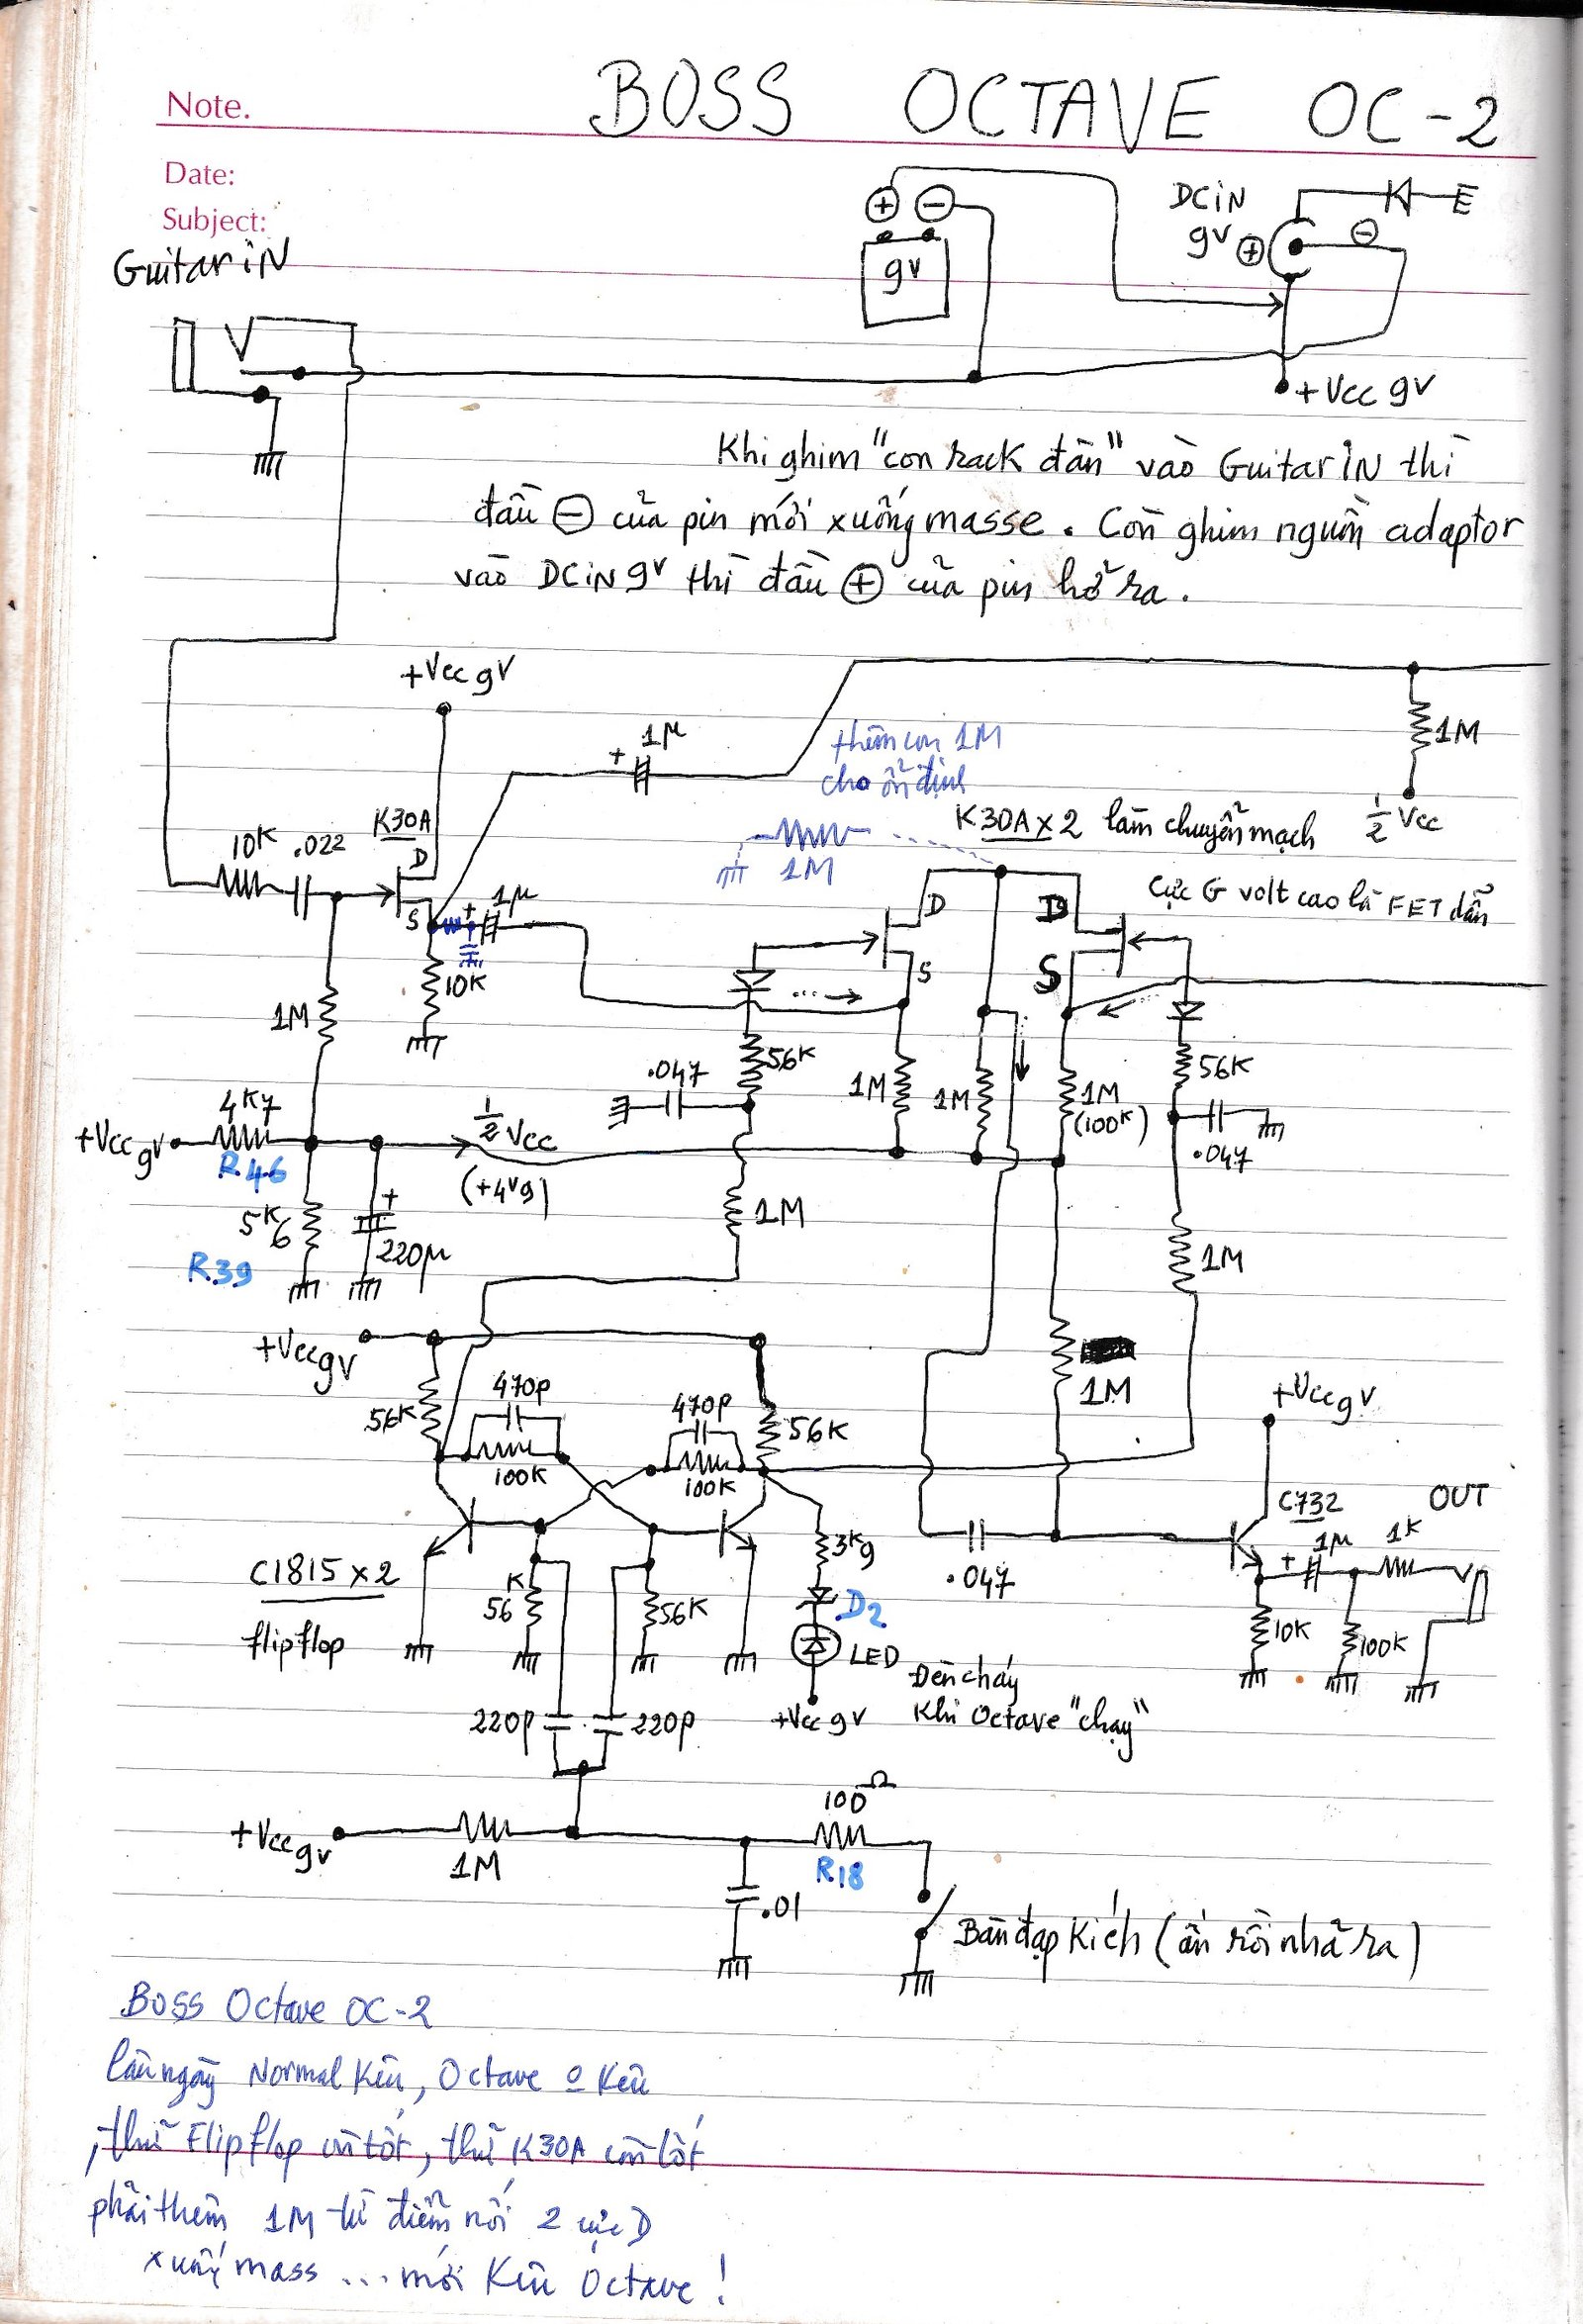 Note.
BOSS OCTAVE OC-2
Date:
Subject:
Guitar iN
+ -
9V
DCiN
9V +
-
E
+Vcc 9V
Khi ghim "con rack đàn" vào Guitar iN thì
đầu - của pin mới xuống masse. Còn ghim nguồn adaptor
vào DCiN 9V thì đầu + của pin hở ra.
+Vcc 9V
+ 1µ
thêm con 1M
cho ổn định
1M
1M
½ Vcc
K30A x 2 làm chuyển mạch
cực G volt cao là FET dẫn
10K .022
K30A
D
S
+ 1µ
10K
1M
D
S
D
S
56K
.047
1M
1M
1M
(100K)
56K
.047
+Vcc 9V
4K7
R46
5K6
R39
+
220µ
½ Vcc
(+4V9)
1M
1M
+Vcc 9V
56K
470p
100K
470p
100K
56K
1M
+Vcc 9V
C1815 x 2
flip flop
56K
56K
3K9
D2
LED
+Vcc 9V
Đèn cháy
Khi Octave "chạy"
.047
C732
+ 1µ
1K
OUT
10K
100K
220p
220p
+Vcc 9V
1M
100Ω
R18
.01
Bàn đạp kích (ấn rồi nhả ra)
Boss Octave OC-2
lâu ngày Normal Kêu, Octave o Kêu
, thử Flip flop còn tốt, thử K30A còn tốt
phải thêm 1M từ điểm nối 2 cực D
xuống mass ... mới Kêu Octave !